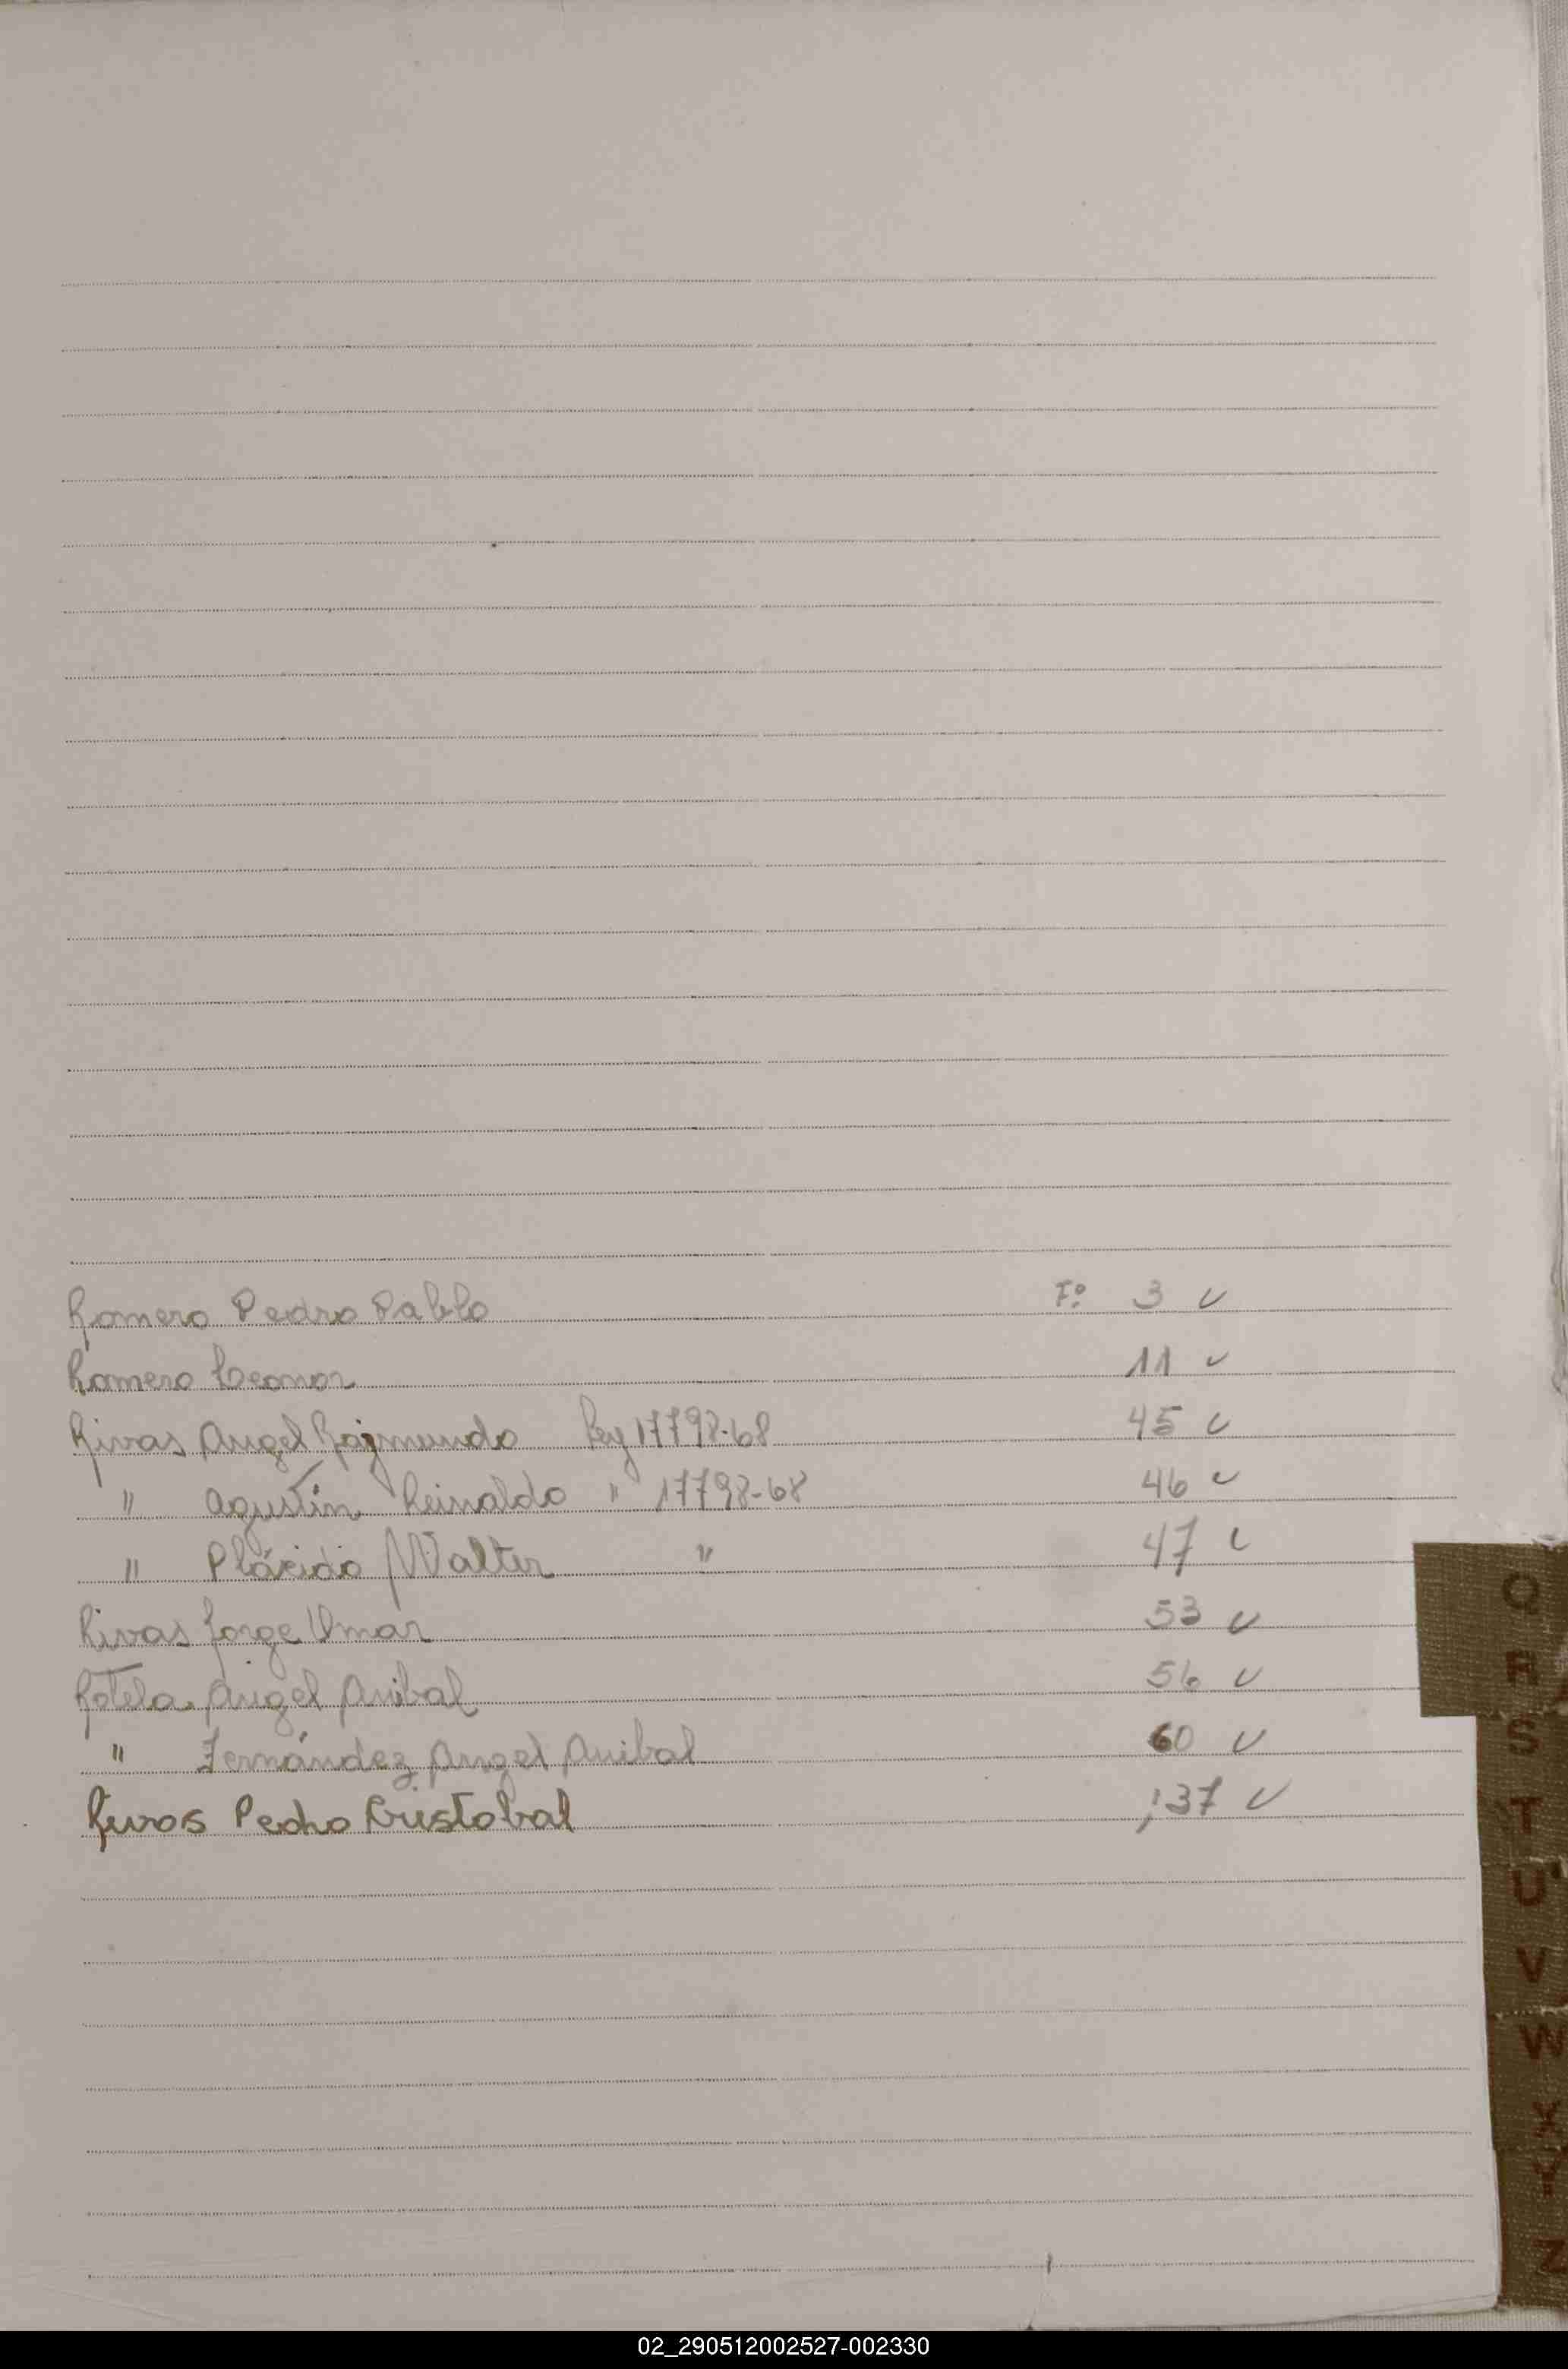 Romero Pedro Pablo Fº 3 ✓
Romero Leonor 11 ✓
Rivas Angel Raymundo Ley 17798-68 45 ✓
" Agustín Reinaldo " 17798-68 46 ✓
" Plácido Walter " 47 ✓
Rivas Jorge Omar 53 ✓
Rotela Angel Anibal 56 ✓
" Fernández Angel Anibal 60 ✓
Rivas Pedro Cristobal 137 ✓
Q
R
S
T
U
V
W
X
Y
Z
02_290512002527-002330